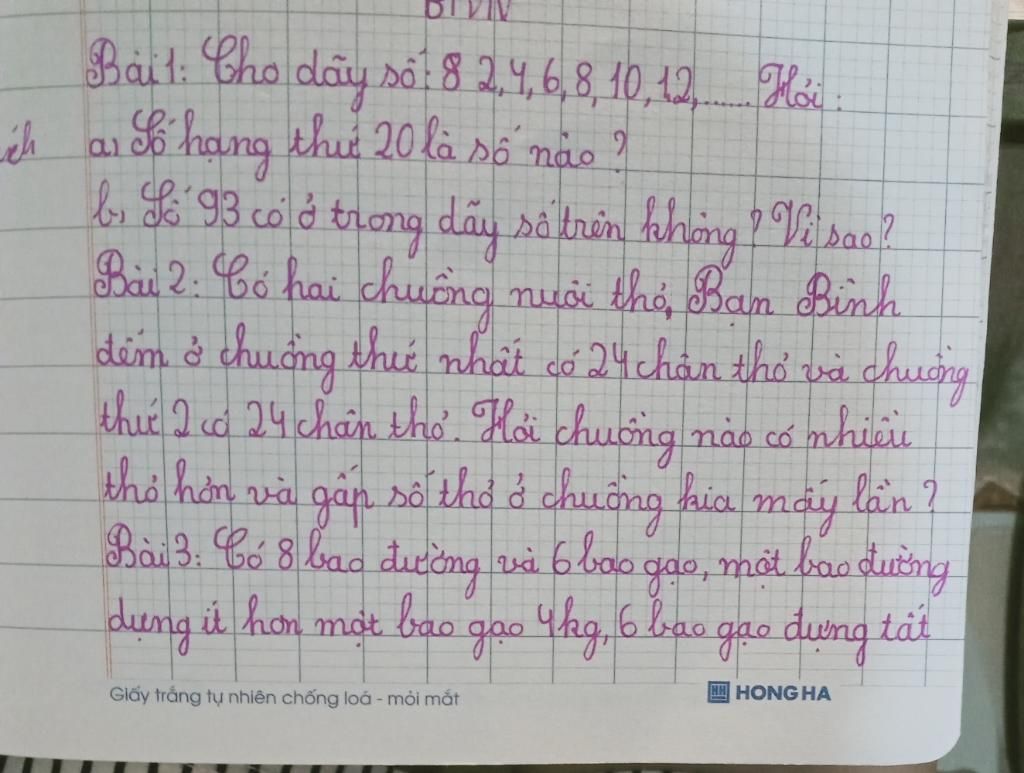 BTVN
Bài 1: Cho dãy số: 8 2, 4, 6, 8, 10, 12, ...... Hỏi:
ch a, Số hạng thứ 20 là số nào?
b, Số 93 có ở trong dãy số trên không? Vì sao?
Bài 2: Có hai chuồng nuôi thỏ, Bạn Bình
đếm ở chuồng thứ nhất có 24 chân thỏ và chuồng
thứ 2 có 24 chân thỏ. Hỏi chuồng nào có nhiều
thỏ hơn và gấp số thỏ ở chuồng kia mấy lần?
Bài 3: Có 8 bao đường và 6 bao gạo, một bao đường
đựng ít hơn một bao gạo 4kg, 6 bao gạo đựng tất
Giấy trắng tự nhiên chống loá - mỏi mắt
HH HONG HA